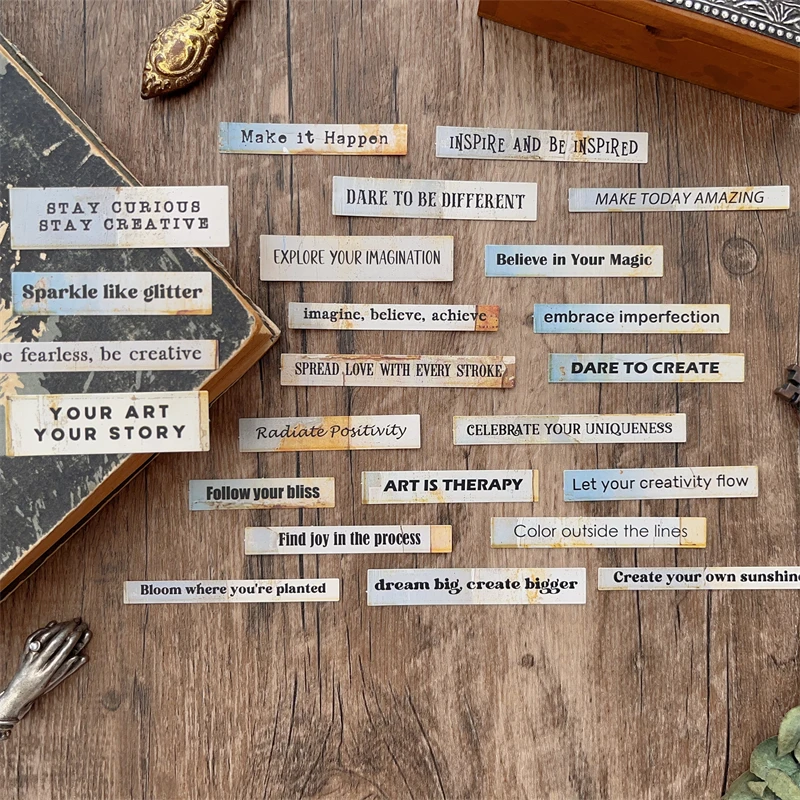 Make it Happen
INSPIRE AND BE INSPIRED
DARE TO BE DIFFERENT
MAKE TODAY AMAZING
STAY CURIOUS
STAY CREATIVE
EXPLORE YOUR IMAGINATION
Believe in Your Magic
Sparkle like glitter
imagine, believe, achieve
embrace imperfection
be fearless, be creative
SPREAD LOVE WITH EVERY STROKE
DARE TO CREATE
YOUR ART
YOUR STORY
Radiate Positivity
CELEBRATE YOUR UNIQUENESS
Follow your bliss
ART IS THERAPY
Let your creativity flow
Find joy in the process
Color outside the lines
Bloom where you're planted
dream big, create bigger
Create your own sunshin